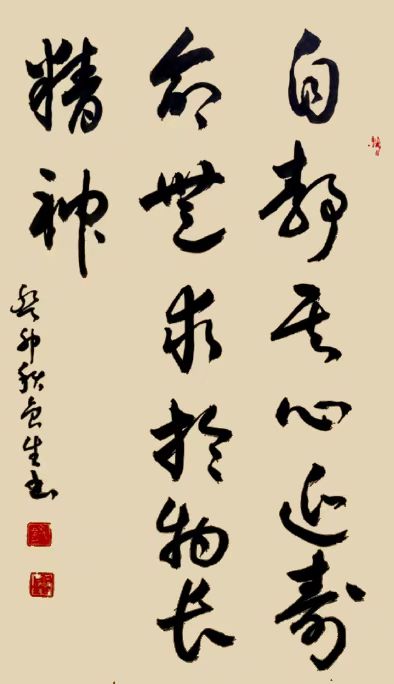 自静其心延寿
命无求於物长
精神
癸卯秋
生书